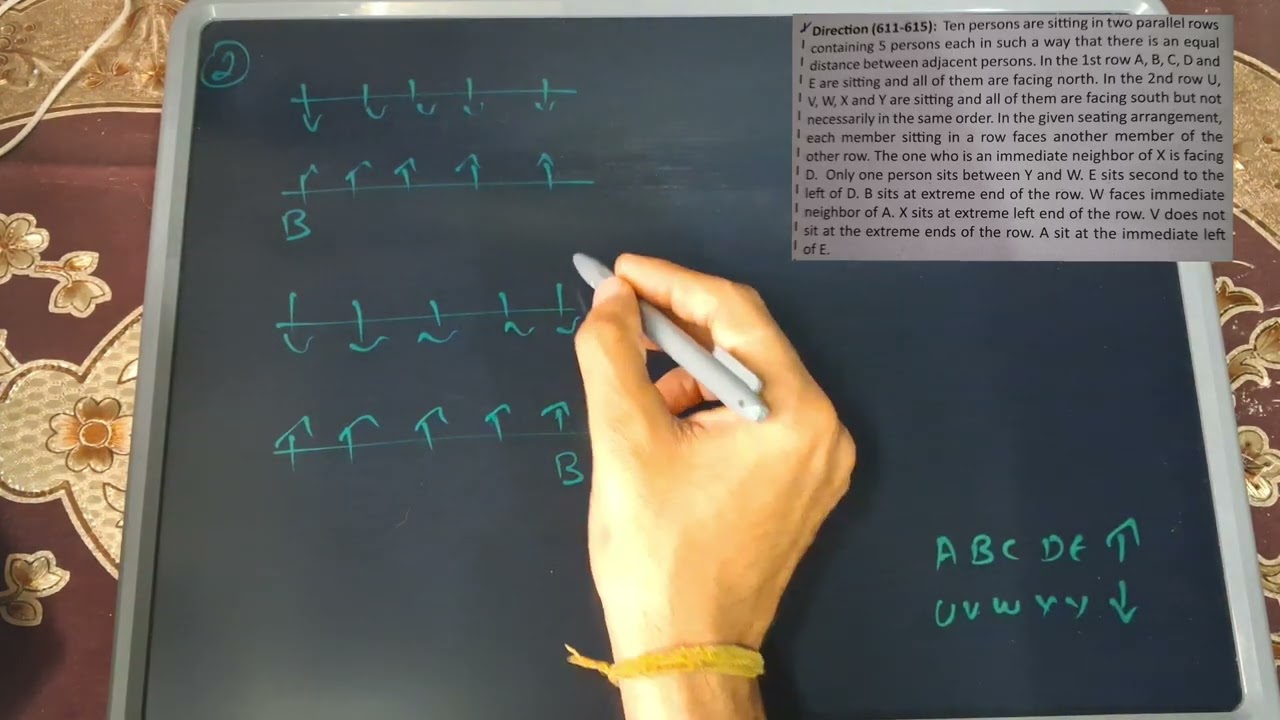 2
B
B
✓ Direction (611-615): Ten persons are sitting in two parallel rows
containing 5 persons each in such a way that there is an equal
distance between adjacent persons. In the 1st row A, B, C, D and
E are sitting and all of them are facing north. In the 2nd row U,
V, W, X and Y are sitting and all of them are facing south but not
necessarily in the same order. In the given seating arrangement,
each member sitting in a row faces another member of the
other row. The one who is an immediate neighbor of X is facing
D. Only one person sits between Y and W. E sits second to the
left of D. B sits at extreme end of the row. W faces immediate
neighbor of A. X sits at extreme left end of the row. V does not
sit at the extreme ends of the row. A sit at the immediate left
of E.
A B C D E ↑
U V W X Y ↓